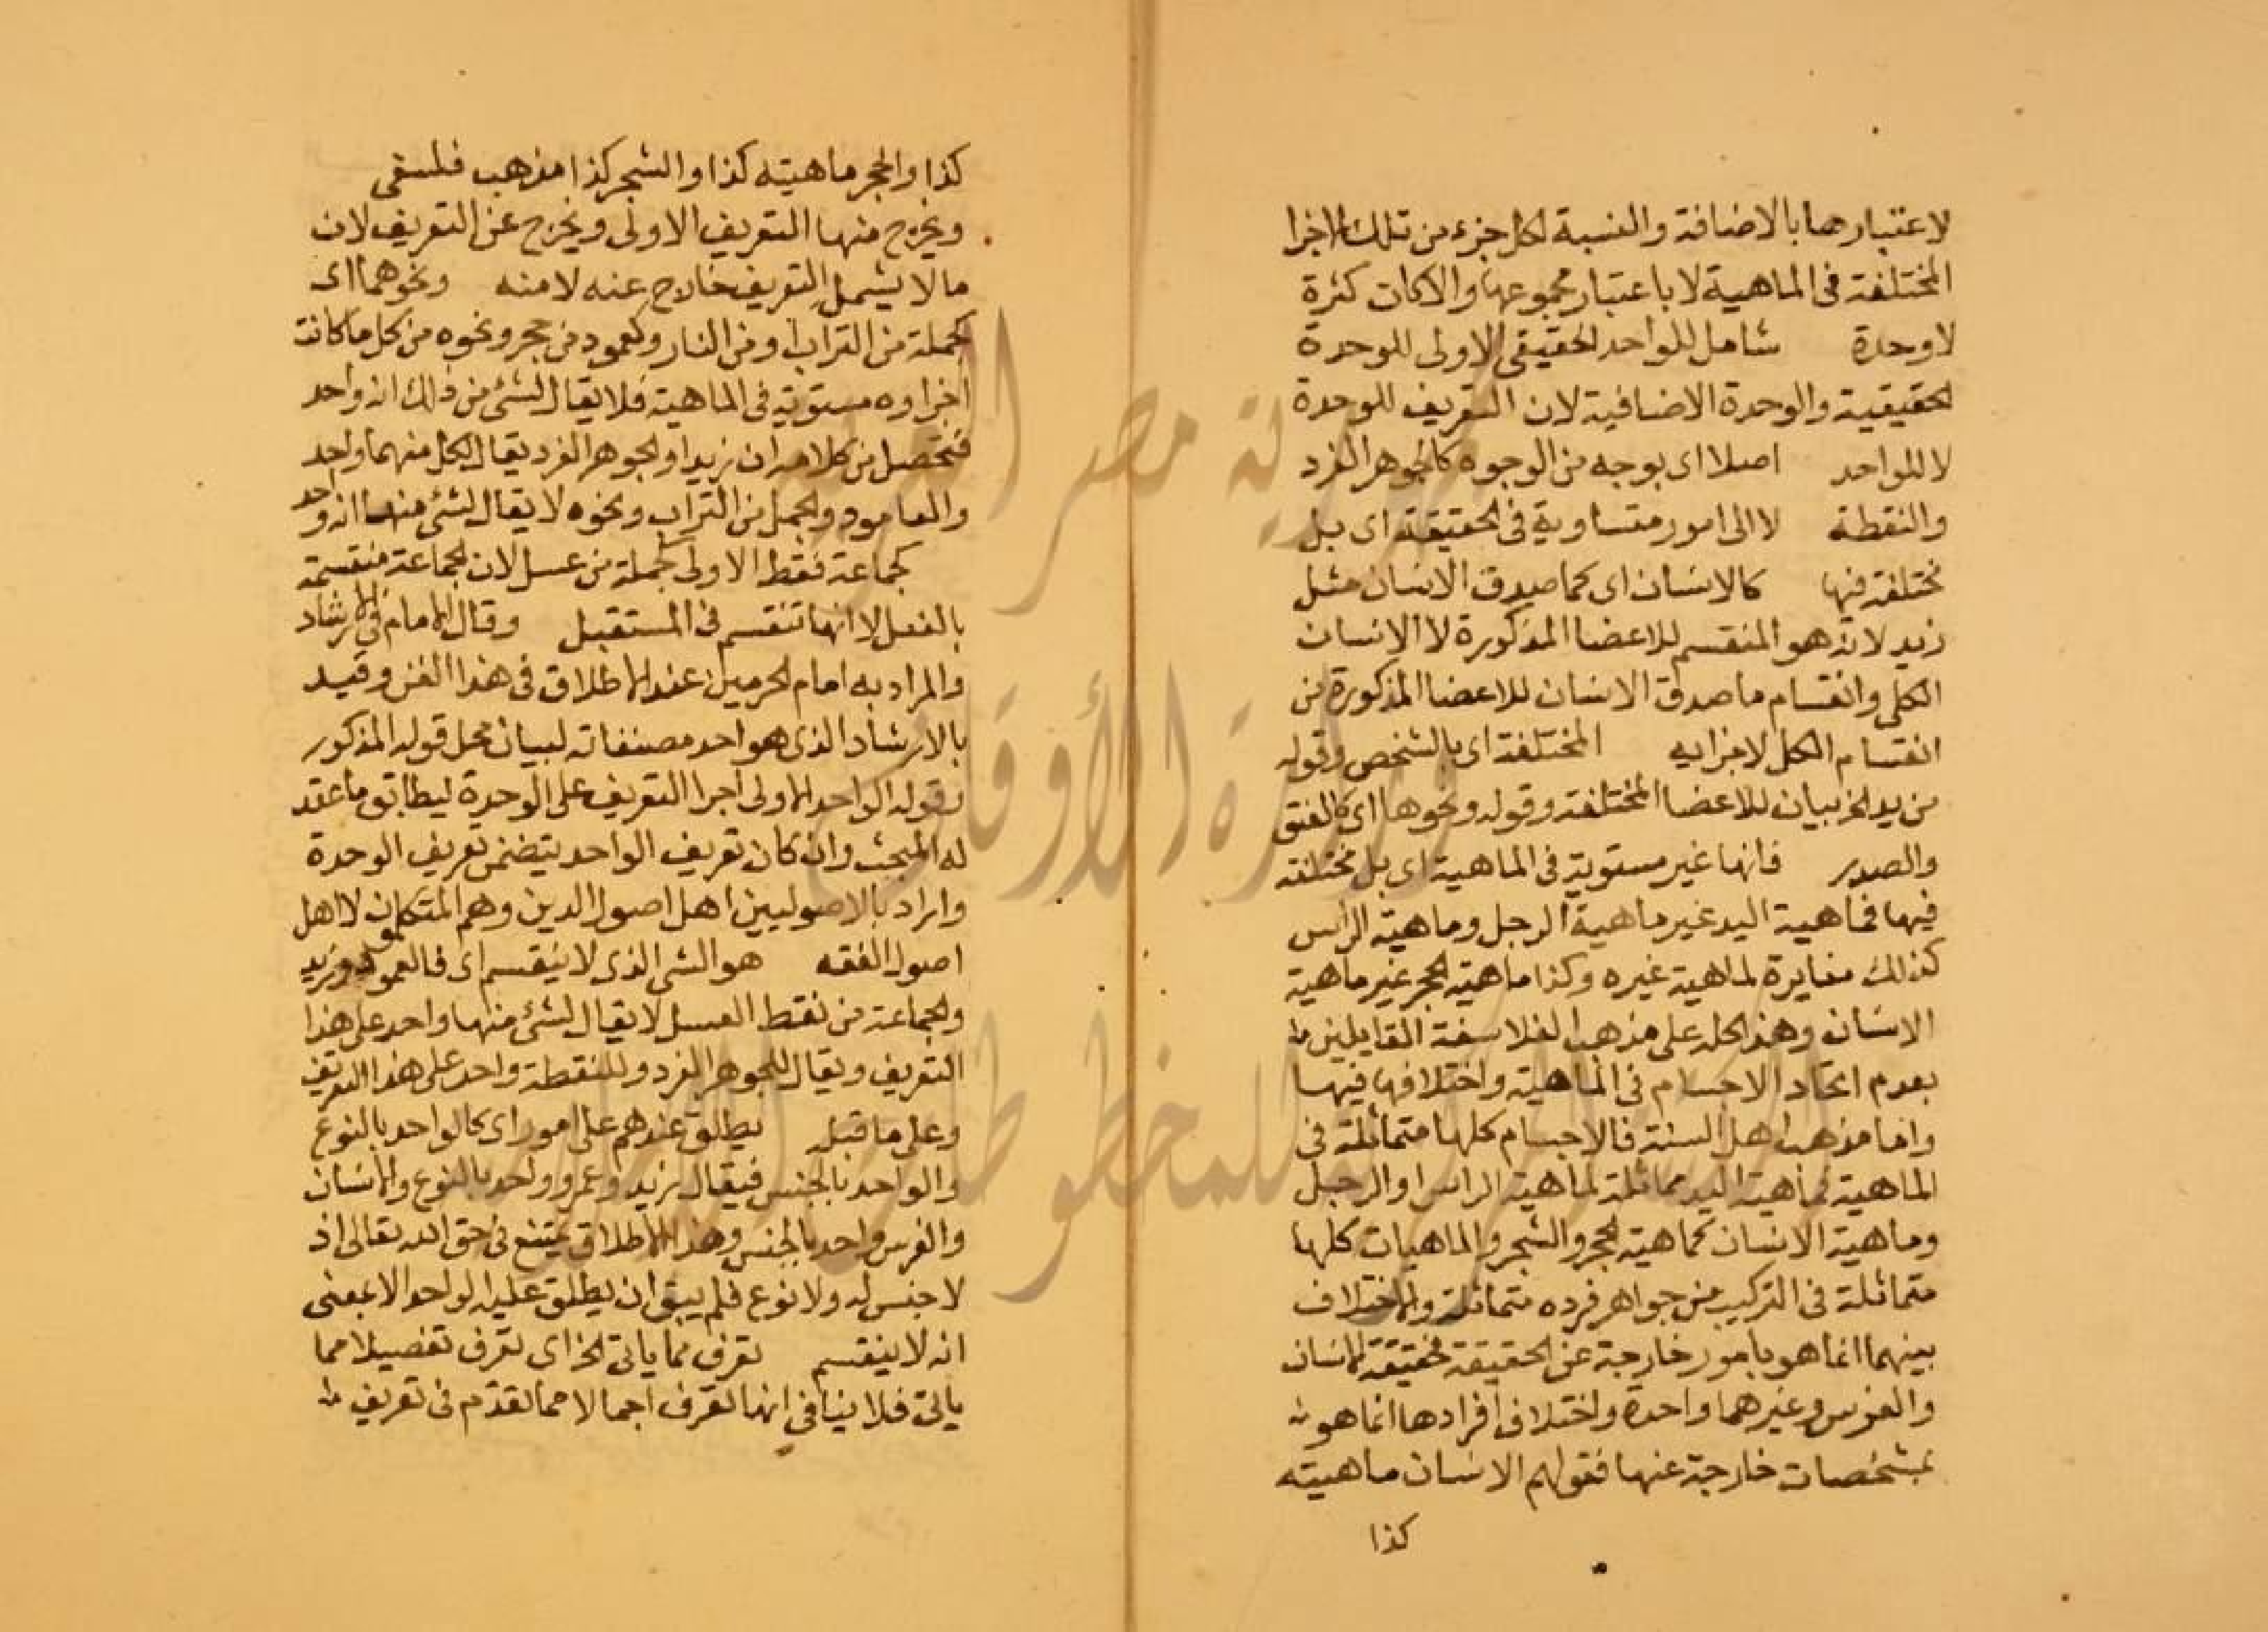 لاعتبارهما بالاضافة والنسبة لكل جزء من تلك الاجزا
المختلفة فى الماهية لا باعتبار مجموعها والا كانت كثرة
لا وحدة شامل للواحد الحقيقى الاولى للوحدة
الحقيقية والوحدة الاضافية لان التعريف للوحدة
لا للواحد اصلا اى بوجه من الوجوه كالجوهر الفرد
والنقطة لا الى امور متساوية فى الحقيقة اى بل
مختلفة فيها كالانسان اى كما صدق الانسان مثل
زيد لانه هو المنقسم للاعضا المذكورة لا الانسان
الكلى وانقسام ما صدق الانسان للاعضا المذكورة من
انقسام الكل لاجزايه المختلفة اى بالشخص وقوله
من يد الخ بيان للاعضا المختلفة وقوله ونحوها اى كالعنق
والصدر فانها غير مستوية فى الماهية اى بل مختلفة
فيها فماهية اليد غير ماهية الرجل وماهية الراس
كذالك مغايرة لماهية غيره وكذا ماهية الحجر غير ماهية
الانسان وهذا كله على مذهب الفلاسفة القايلين
بعدم اتحاد الاجسام فى الماهية واختلافها فيها
واما مذهب اهل السنة فالاجسام كلها متماثلة فى
الماهية فماهية اليد مماثلة لماهية الراس او الرجل
وماهية الانسان كماهية الحجر والشجر والماهيات كلها
متماثلة فى التركيب من جواهر فرده متماثلة والاختلاف
بينهما انما هو بامور خارجة عن الحقيقة فحقيقة الانسان
والفرس وغيرهما واحدة واختلاف افرادها انما هو
بمشخصات خارجة عنها فقولهم الانسان ماهيته
كذا
كذا والحجر ماهيته كذا والشجر كذا مذهب فلسفى
ويخرج منها التعريف الاولى ويخرج عن التعريف لان
ما لا يشمل التعريف خارج عنه لا منه ونحوهما اى
كجملة من التراب او من النار وكعمود من حجر ونحوه من كل ما كانت
اجزاوه مستوية فى الماهية فلا يقال لشئ من ذلك انه واحد
فتحصل من كلامه ان زيدا والجوهر الفرد يقال لكل منهما واحد
والعامود والجمل من التراب ونحوه لا يقال لشئ منها انه واحد
كجماعة فقط الاولى كجملة من عسل لان الجماعة منقسمة
بالفعل لا انها تنقسم فى المستقبل وقال الامام فى الارشاد
والمراد به امام الحرمين عند الاطلاق فى هذا الفن وقيد
بالارشاد الذى هو احد مصنفاته لبيان محل قوله المذكور
بقوله الواحد الاولى اجرا التعريف على الوحدة ليطابق ما عقد
له المبحث وان كان تعريف الواحد يتضمن تعريف الوحدة
واراد بالاصوليين اهل اصول الدين وهم المتكلمون لا اهل
اصول الفقه هو الشى الذى لا ينقسم اى فالعمود وزيد
والجماعة من نقط العسل لا يقال لشئ منها واحد على هذا
التعريف ويقال للجوهر الفرد وللنقطة واحد على هذا التعريف
وعلى ما قبله يطلق عندهم على امور اى كالواحد بالنوع
والواحد بالجنس فيقال زيد وعمرو واحد بالنوع والانسان
والفرس واحد بالجنس وهذا الاطلاق يمتنع فى حق الله تعالى اذ
لا جنس له ولا نوع فلم يبق ان يطلق عليه الواحد الا بمعنى
انه لا ينقسم تعرف مما ياتى الخ اى تعرف تفصيلا مما
ياتى فلا ينافى انها تعرف اجمالا مما تقدم فى تعريف